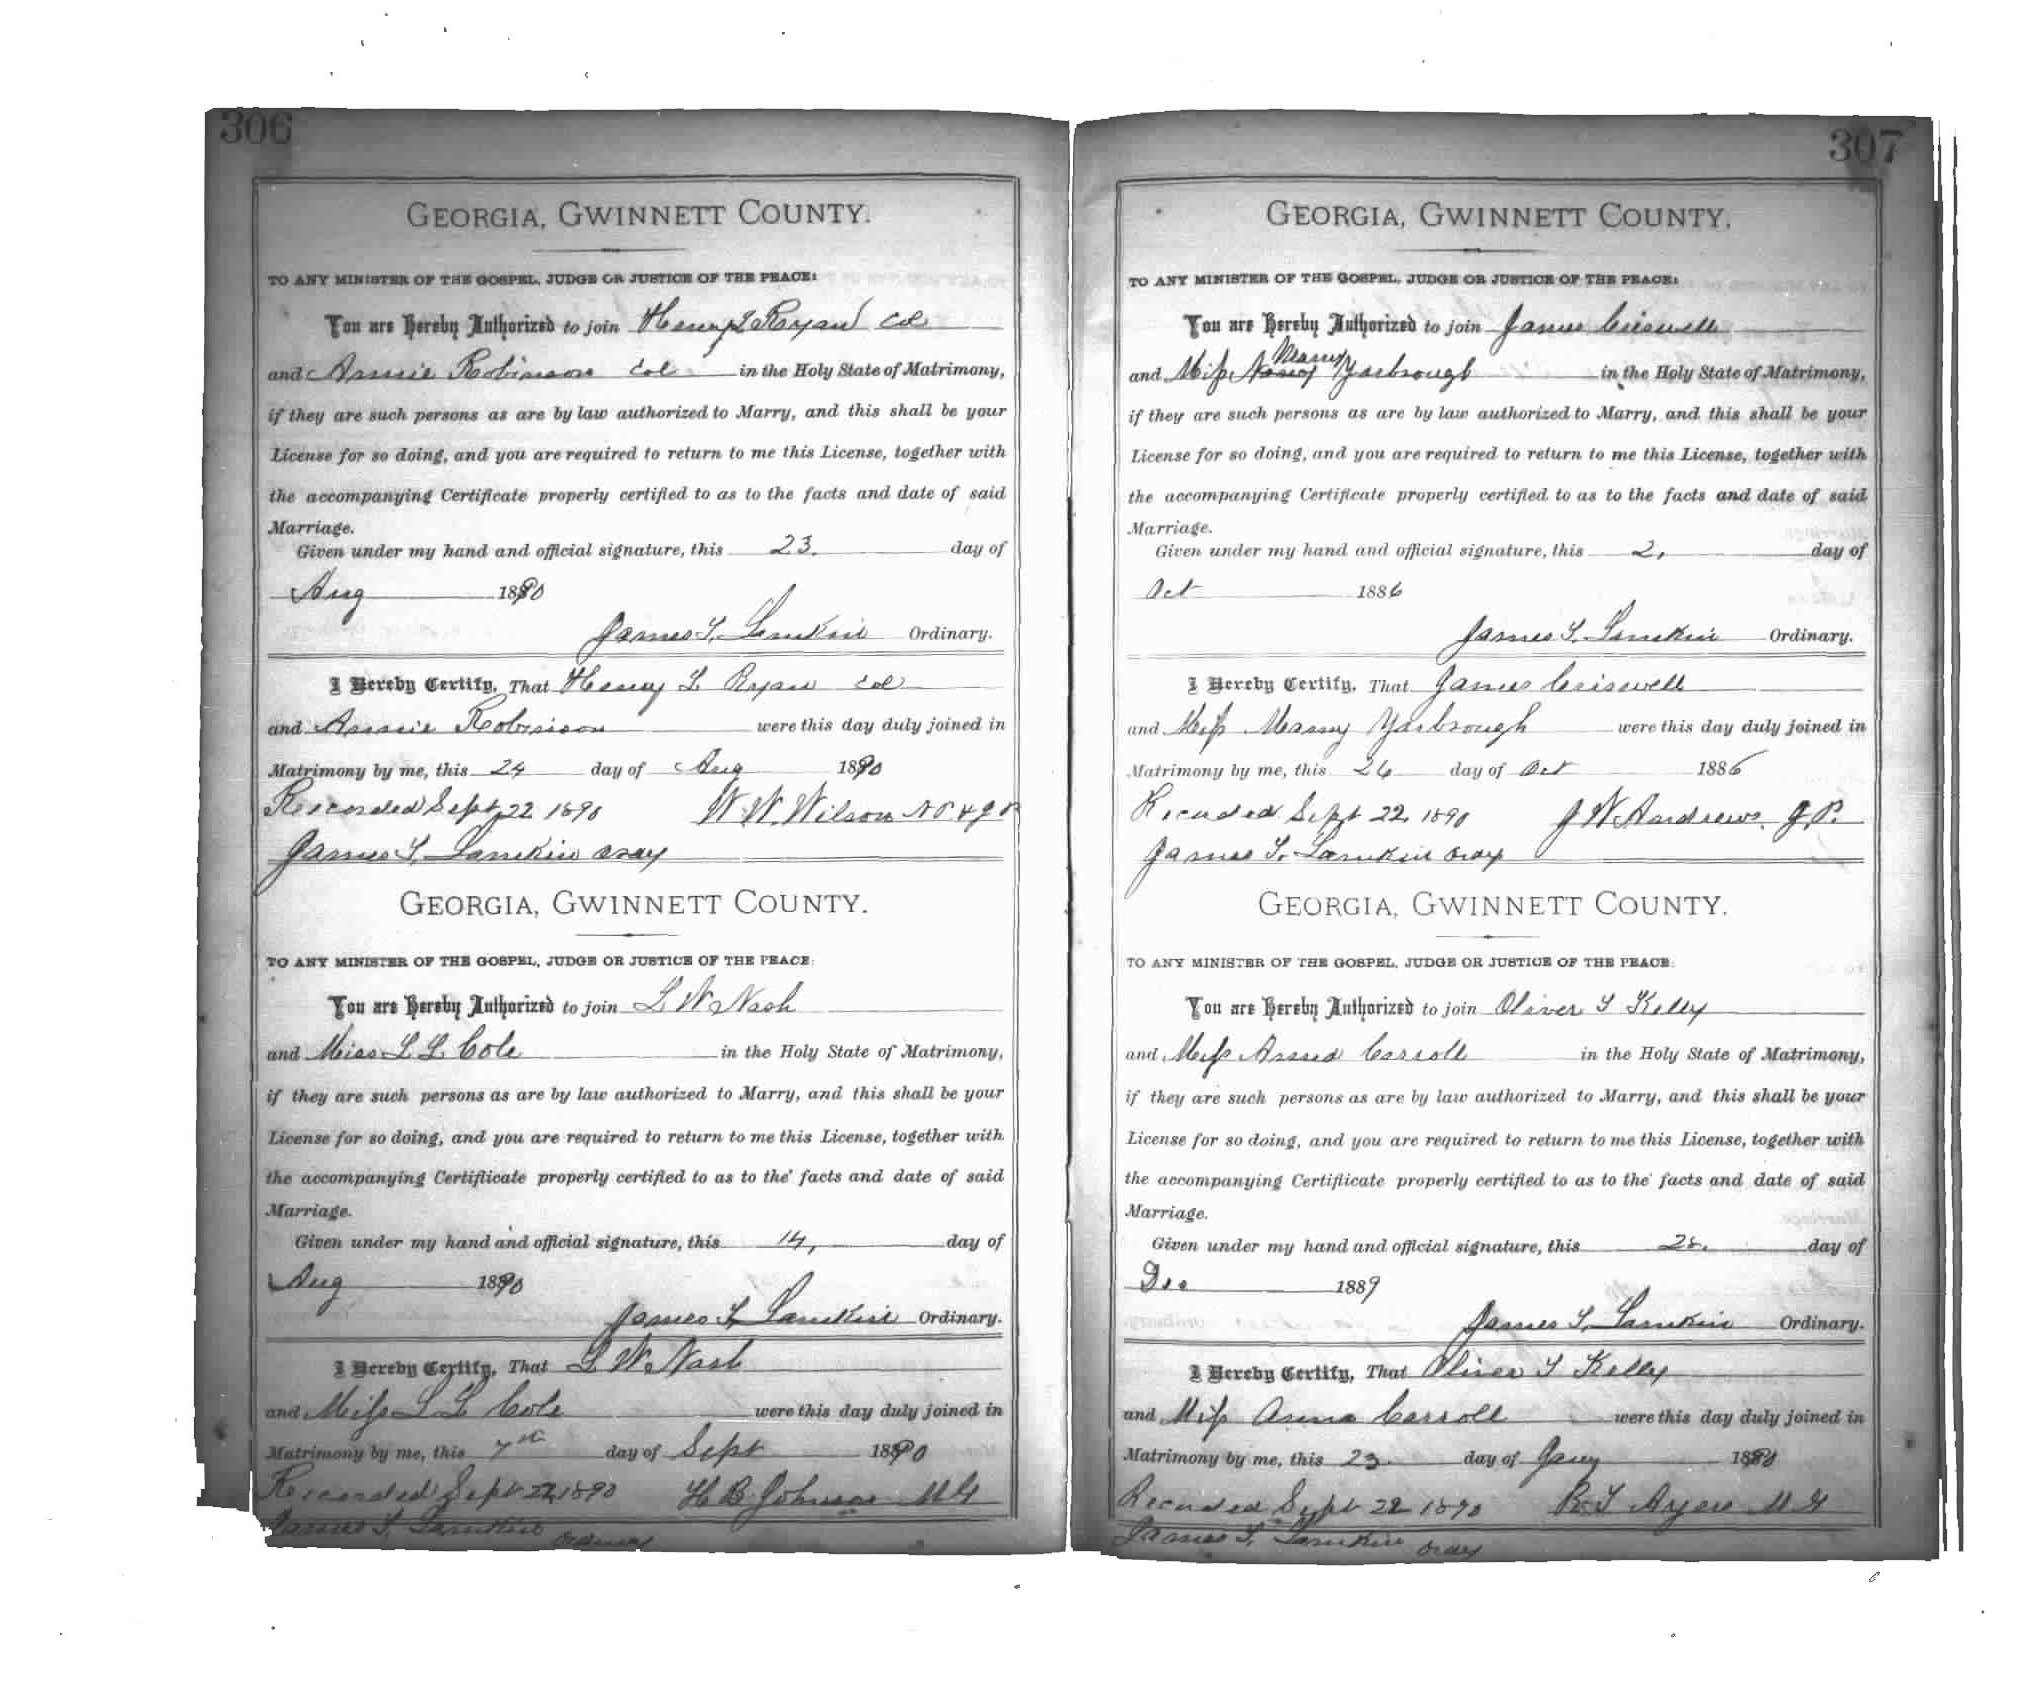 306
GEORGIA, GWINNETT COUNTY.
TO ANY MINISTER OF THE GOSPEL, JUDGE OR JUSTICE OF THE PEACE:
You are Hereby Authorized to join Henry L Ryan Col
and Annie Robinson Col in the Holy State of Matrimony,
if they are such persons as are by law authorized to Marry, and this shall be your
License for so doing, and you are required to return to me this License, together with
the accompanying Certificate properly certified to as to the facts and date of said
Marriage.
Given under my hand and official signature, this 23. day of
Aug 1890
James T. Lamkin Ordinary.
I Hereby Certify, That Henry L Ryan Col
and Annie Robinson were this day duly joined in
Matrimony by me, this 24 day of Aug 1890
Recorded Sept 22 1890 W. W. Wilson N P & J P
James T. Lamkin Ordy
GEORGIA, GWINNETT COUNTY.
TO ANY MINISTER OF THE GOSPEL, JUDGE OR JUSTICE OF THE PEACE:
You are Hereby Authorized to join L W Nash
and Miss L L Cole in the Holy State of Matrimony,
if they are such persons as are by law authorized to Marry, and this shall be your
License for so doing, and you are required to return to me this License, together with
the accompanying Certifiicate properly certified to as to the facts and date of said
Marriage.
Given under my hand and official signature, this 14, day of
Aug 1890
James T. Lamkin Ordinary.
I Hereby Certify, That L W Nash
and Miss L L Cole were this day duly joined in
Matrimony by me, this 7th day of Sept 1890
Recorded Sept 22, 1890 H B Johnson M G
James T. Lamkin Ordinary
307
GEORGIA, GWINNETT COUNTY.
TO ANY MINISTER OF THE GOSPEL, JUDGE OR JUSTICE OF THE PEACE:
You are Hereby Authorized to join James Criswell
and Miss Nancy Yarbrough in the Holy State of Matrimony,
if they are such persons as are by law authorized to Marry, and this shall be your
License for so doing, and you are required to return to me this License, together with
the accompanying Certificate properly certified to as to the facts and date of said
Marriage.
Given under my hand and official signature, this 2, day of
Oct 1886
James T. Lamkin Ordinary.
I Hereby Certify, That James Criswell
and Miss Yarbrough were this day duly joined in
Matrimony by me, this 26 day of Oct 1886
Recorded Sept 22 1890 J W Andrews. J. P.
James T. Lamkin Ordy
GEORGIA, GWINNETT COUNTY.
TO ANY MINISTER OF THE GOSPEL, JUDGE OR JUSTICE OF THE PEACE:
You are Hereby Authorized to join Oliver T Kelly
and Miss Anna Carroll in the Holy State of Matrimony,
if they are such persons as are by law authorized to Marry, and this shall be your
License for so doing, and you are required to return to me this License, together with
the accompanying Certifiicate properly certified to as to the facts and date of said
Marriage.
Given under my hand and official signature, this 28. day of
Dec 1889
James T. Lamkin Ordinary.
I Hereby Certify, That Oliver T Kelly
and Miss Anna Carroll were this day duly joined in
Matrimony by me, this 23 day of Jany 1890
Recorded Sept 22 1890 R. T Ayers M G
James T. Lamkin Ordy